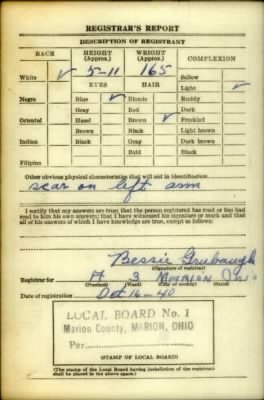 REGISTRAR'S REPORT
DESCRIPTION OF REGISTRANT
RACE HEIGHT (Approx.) WEIGHT (Approx.) COMPLEXION
White ✓ 5-11 165 Sallow
EYES HAIR Light ✓
Negro Blue ✓ Blonde Ruddy
Gray Red Dark
Oriental Hazel Brown ✓ Freckled
Brown Black Light brown
Indian Black Gray Dark brown
Bald Black
Filipino
Other obvious physical characteristics that will aid in identification
scar on left arm
I certify that my answers are true; that the person registered has read or has had
read to him his own answers; that I have witnessed his signature or mark and that
all of his answers of which I have knowledge are true, except as follows:
Bessie Grubaugh
(Signature of registrar)
Registrar for 3 Marion Ohio
(Precinct) (Ward) (City or county) (State)
Date of registration Oct 16-40
LOCAL BOARD No. 1
Marion County, MARION, OHIO
Per
(STAMP OF LOCAL BOARD)
(The stamp of the Local Board having jurisdiction of the registrant
shall be placed in the above space.)